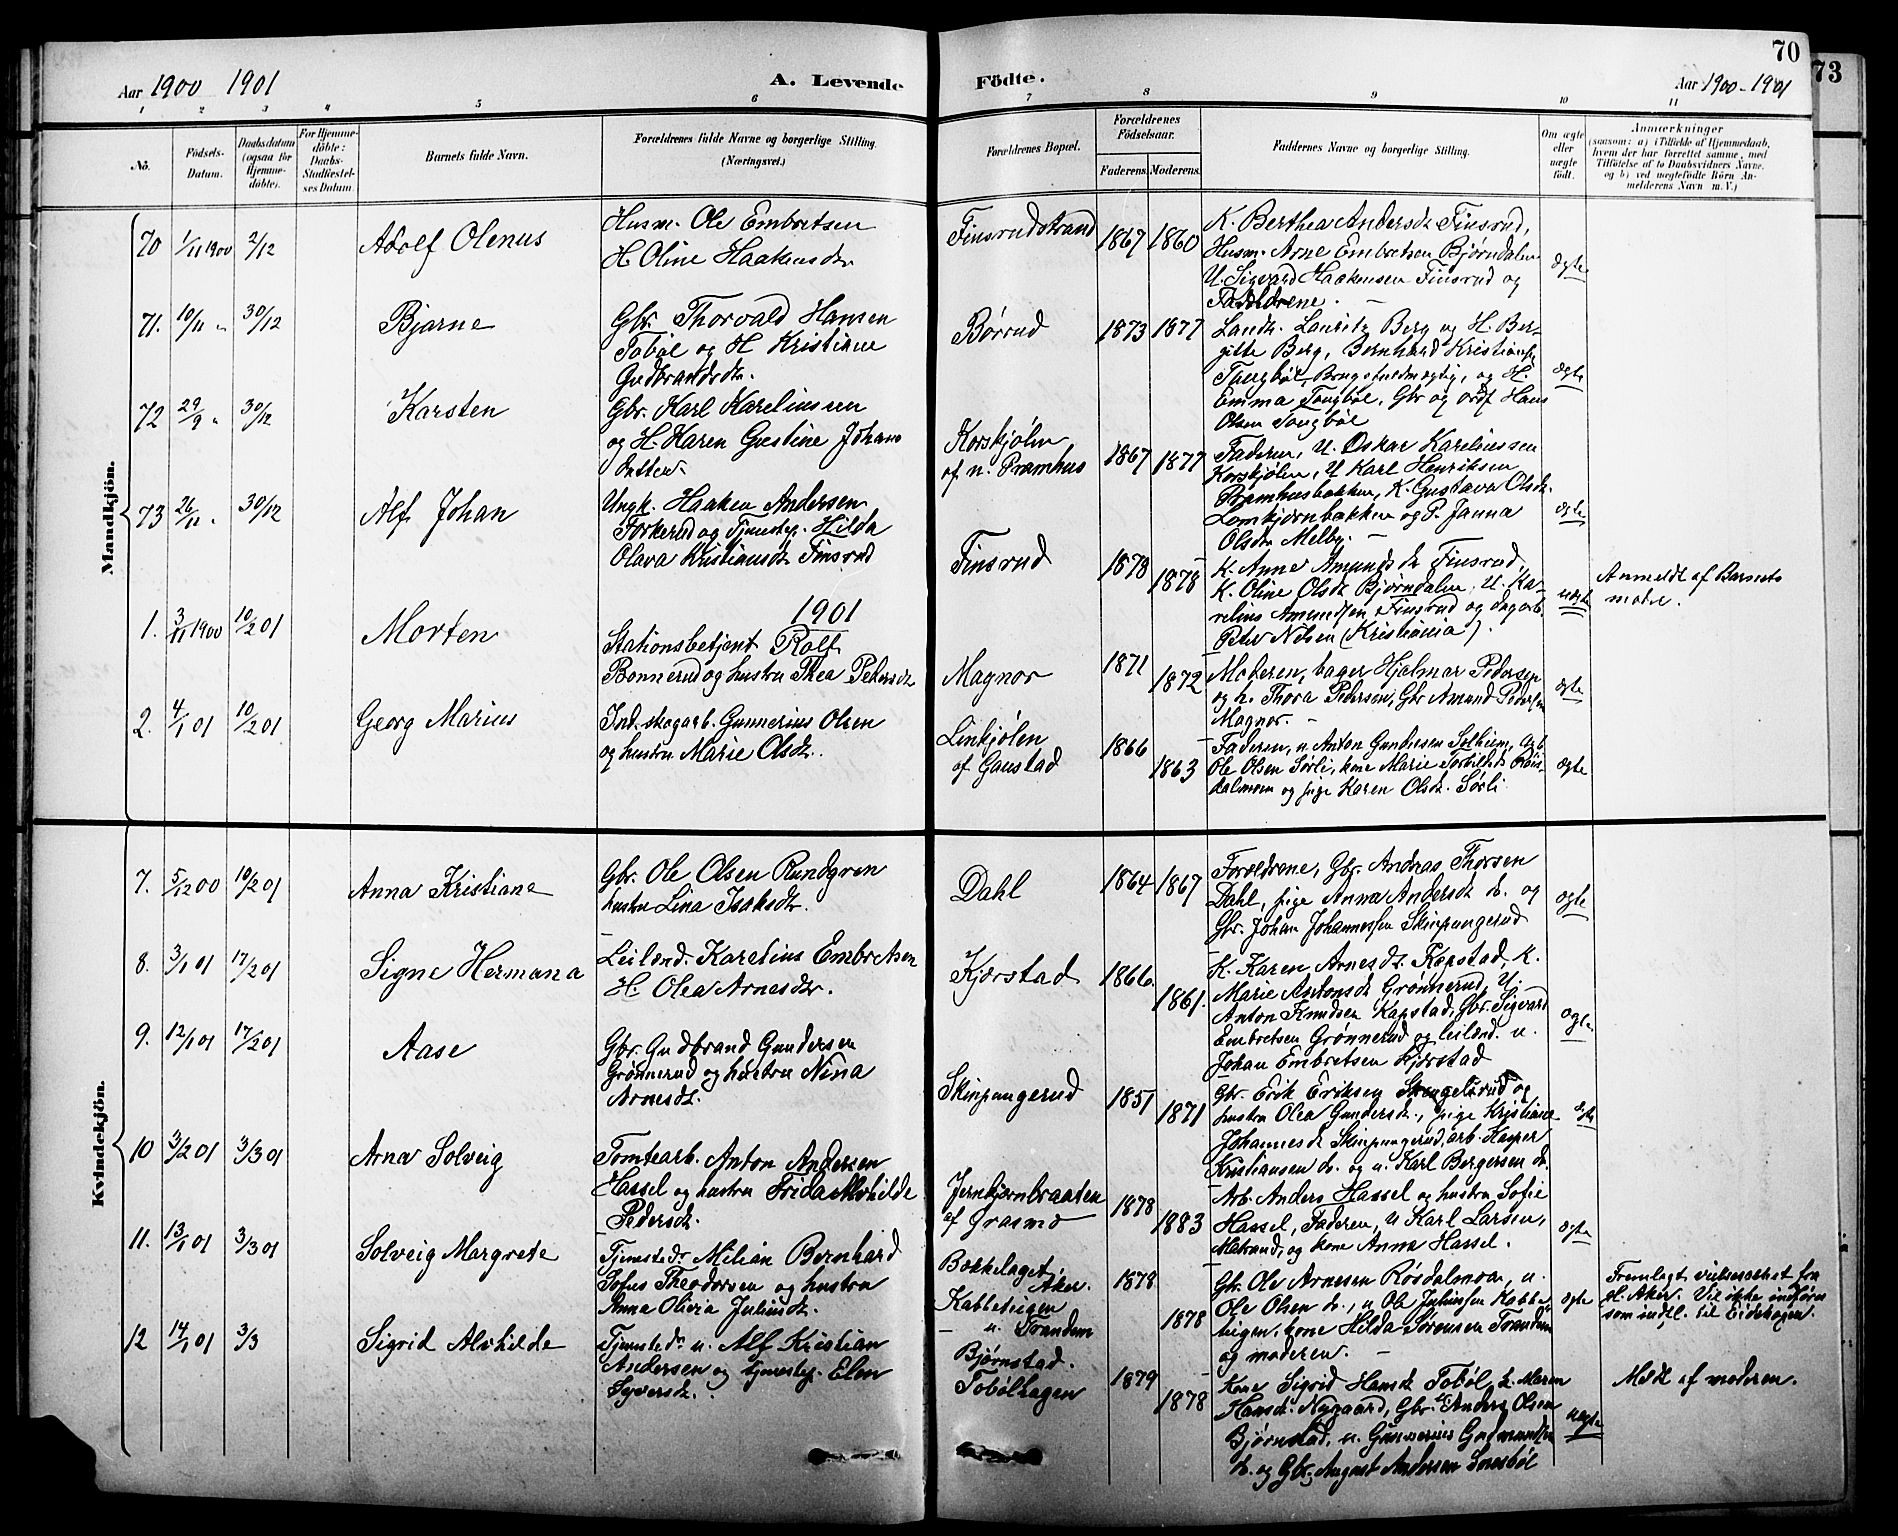 70
73
Aar 1900 1901
A. Levende
Födte.
Aar 1900-1901
1 2 3 4 5 6 7 8 9 10 11
No.
Födsels-
Datum.
Daabsdatum
(ogsaa for
Hjemme-
döbte).
For Hjemme-
döbte:
Daabs-
Stadfæstel-
ses Datum.
Barnets fulde Navn.
Forældrenes fulde Navne og borgerlige Stilling.
(Næringsvei.)
Forældrenes Bopæl.
Forældrenes
Födselsaar.
Faderens. Moderens.
Faddernes Navne og borgerlige Stilling.
Om ægte
eller
uægte
födt.
Anmærkninger
(saasom: a) i Tilfælde af Hjemmedaab,
hvem der har forrettet samme, med
Tilföielse af to Daabsvidners Navne,
og b) ved uægtefödte Börn An-
melderens Navn m. V.)
Mandkjön.
70 1/11 1900 2/12
Adolf Olenus
Husm. Ole Embretsen
H. Oline Haakensdtr
Finsrudstrand
1867 1860
K. Berthea Andersdt Finsrud,
Husm. Arne Embretsen Bjørndalen
U. Sigvard Haakensen Finsrud og
Forældrene. —
ægte
71. 10/11 " 30/12
Bjarne
Gbr. Thorvald Hansen
Tobøl og H Kristiane
Gudbrandsdtr.
Børrud
1873 1877
Landh. Lauritz Berg og H. Ber-
gitte Berg, Bernhard Kristians
Taugbøl, Brugsfuldmægtig, og H.
Emma Taugbøl, Gbr og ordf Hans
Olsen Taugbøl
ægte
72 29/9 " 30/12
Karsten
Gbr. Karl Kareliussen
og H. Karen Gustine Johans
datter
Korskjølen
af n. Pramhus
1867 1877
Faderen, U. Oskar Kareliussen
Korskjølen, U Karl Henriksen
Pramhusbakken, K. Gustava Olsdt.
Lomkjernbakken og P. Janna
Olsdtr Melby. —
ægte
73 26/11 " 30/12
Alf Johan
Ungk. Haaken Andersen
Forkerud og Tjenestep. Hilda
Olava Kristiansdt Finsrud
Finsrud
1878 1878
K. Anne Amundsdt Finsrud,
K. Oline Olsdt Bjørndalen, U. Ka-
relius Amundsen Finsrud og dagarb.
Peter Nilsen (Kristiania).
uægte
Anmeldt af Barnets
moder.
1901
1. 3/11 1900 10/2 01
Morten
Stationsbetjent Rolf
Bonnerud og hustru Thea Pedersdt
Magnor
1871 1872
Moderen, bager Hjalmar Pedersen
og h. Thora Pedersen, Gbr Amund Pedersen
Magnor. —
ægte
2. 4/1 01 10/2 01
Georg Marius
Ind. skogarb. Gunnerius Olsen
og hustru Marie Olsdt.
Linkjølen
af Gaustad
1866 1863
Faderen, u Anton Gundersen Solheim, Arb.
Ole Olsen Sørli, kone Marie Torkildsdt Røis-
dalmoen og pige Karen Olsdt. Sørli
ægte
Kvindekjön.
7. 5/12 00 10/2 01
Anna Kristiane
Gbr. Ole Olsen Rundgren
hustru Lina Isaksdtr.
Dahl
1864 1867
Forældrene, Gbr. Andreas Thorsen
Dahl, pige Anna Andersdt ds. og
Gbr. Johan Johannessen Skinpungerud
ægte
8. 3/1 01 17/2 01
Signe Hermana
Leilænd. Karelius Embretsen
H. Olea Arnesdtr.
Kjærstad
1866. 1861.
K. Karen Arnesdt. Kapstad, K.
Marie Antonsdt Grønnerud, U.
Anton Knudsen Kapstad, Gbr. Sigvard
Embretsen Grønnerud og leilænd. u.
Johan Embretsen Kjærstad
ægte
9. 12/1 01 17/2 01
Aase
Gbr. Gudbrand Gundersen
Grønnerud og hustru Nina
Arnesdt.
Skinpungerud
1851 1871
Gbr. Erik Eriksen Skengelsrud og
hustru Olea Gundersdt., pige Kristiane
Johannesdt Skinpungerud, arb. Kasper
Kristiansen ds. og u. Karl Bergersen ds.
ægte
10 3/2 01 3/3 01
Arna Solveig
Tomtearb. Anton Andersen
Hassel og hustru Frida Alvhilde
Pedersdt.
Jernkjernbraaten
af Grasmo
1878 1883
Arb. Anders Hassel og hustru Sofie
Hassel, Faderen, U Karl Larsen,
Matrand, og kone Anna Hassel.
ægte
11. 13/1 01 3/3 01
Solveig Margrete
Tjenestedr Milian Bernhard
Sofus Theodorsen og hustru
Anna Olivia Juliusdt.
Bækkelaget
Aker.
Kabbstigen
— u. Trandem
1878 1878
Gbr. Ole Arnesen Røsdalmoen, u.
Ole Olsen ds., u Ole Juliussen Kabb-
stigen, kone Hilda Sørensen Trandem
og moderen. —
ægte
Fremlagt vielsesattest fra
pl. Aker. Vil ikke indføres
som indfl. til Eidskogen.
12 14/1 01 3/3
Sigrid Alvhilde
Tjenestedr. u. Alf Kristian
Andersen og tjenestep. Elen
Syversdt.
Bjørnstad.
Tobølhagen
1879 1878
Kone Sigrid Hansdt Tobøl, k. Maren
Hansdt. Nygaard, Gbr. Anders Olsen
Bjørnstad, u. Gunnerius Gudmundsen
ds. og Gbr. August Andersen Snesbøl
uægte
Meldt af moderen.